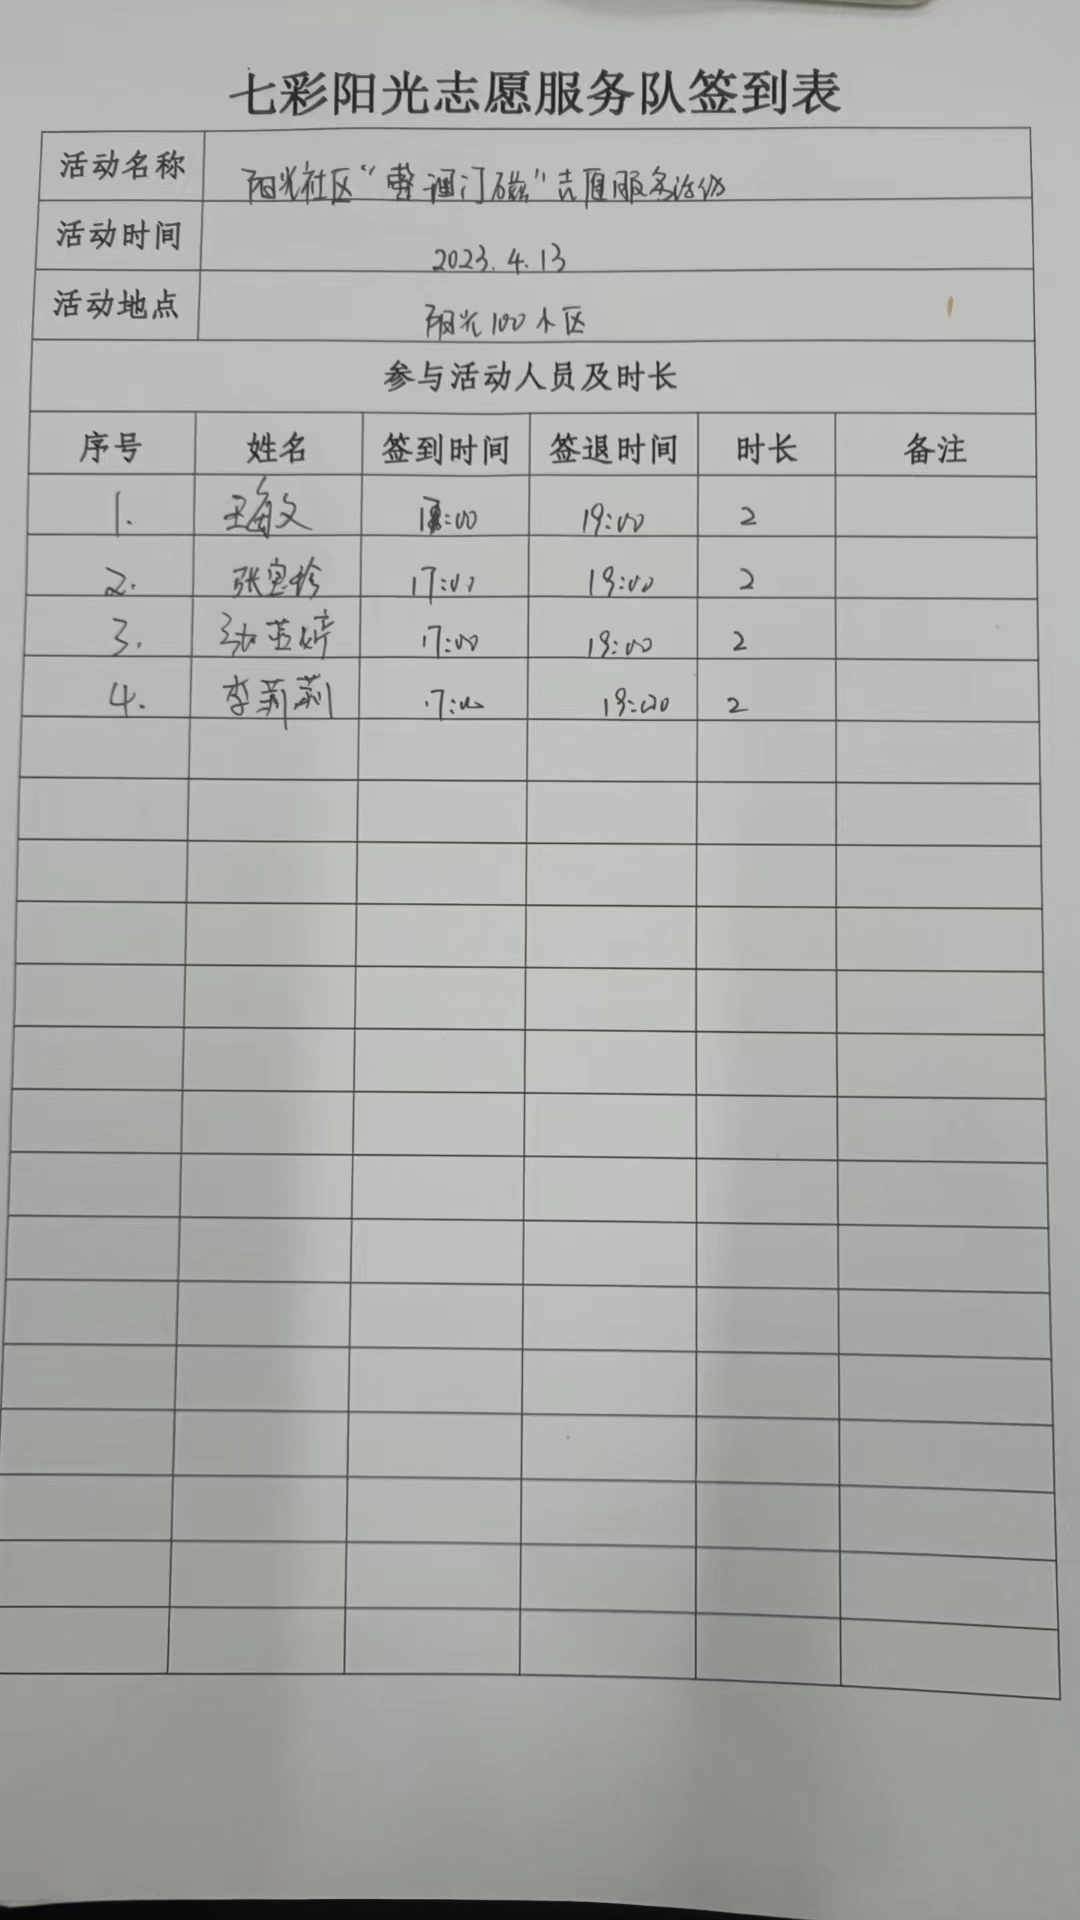 七彩阳光志愿服务队签到表
活动名称 阳光社区“ 门磁”志愿服务活动
活动时间 2023.4.13
活动地点 阳光100小区
参与活动人员及时长
序号 姓名 签到时间 签退时间 时长 备注
1. 王海文 17:00 19:00 2
2. 张宝珍 17:00 19:00 2
3. 婷 17:00 19:00 2
4. 李莉莉 17:00 19:00 2